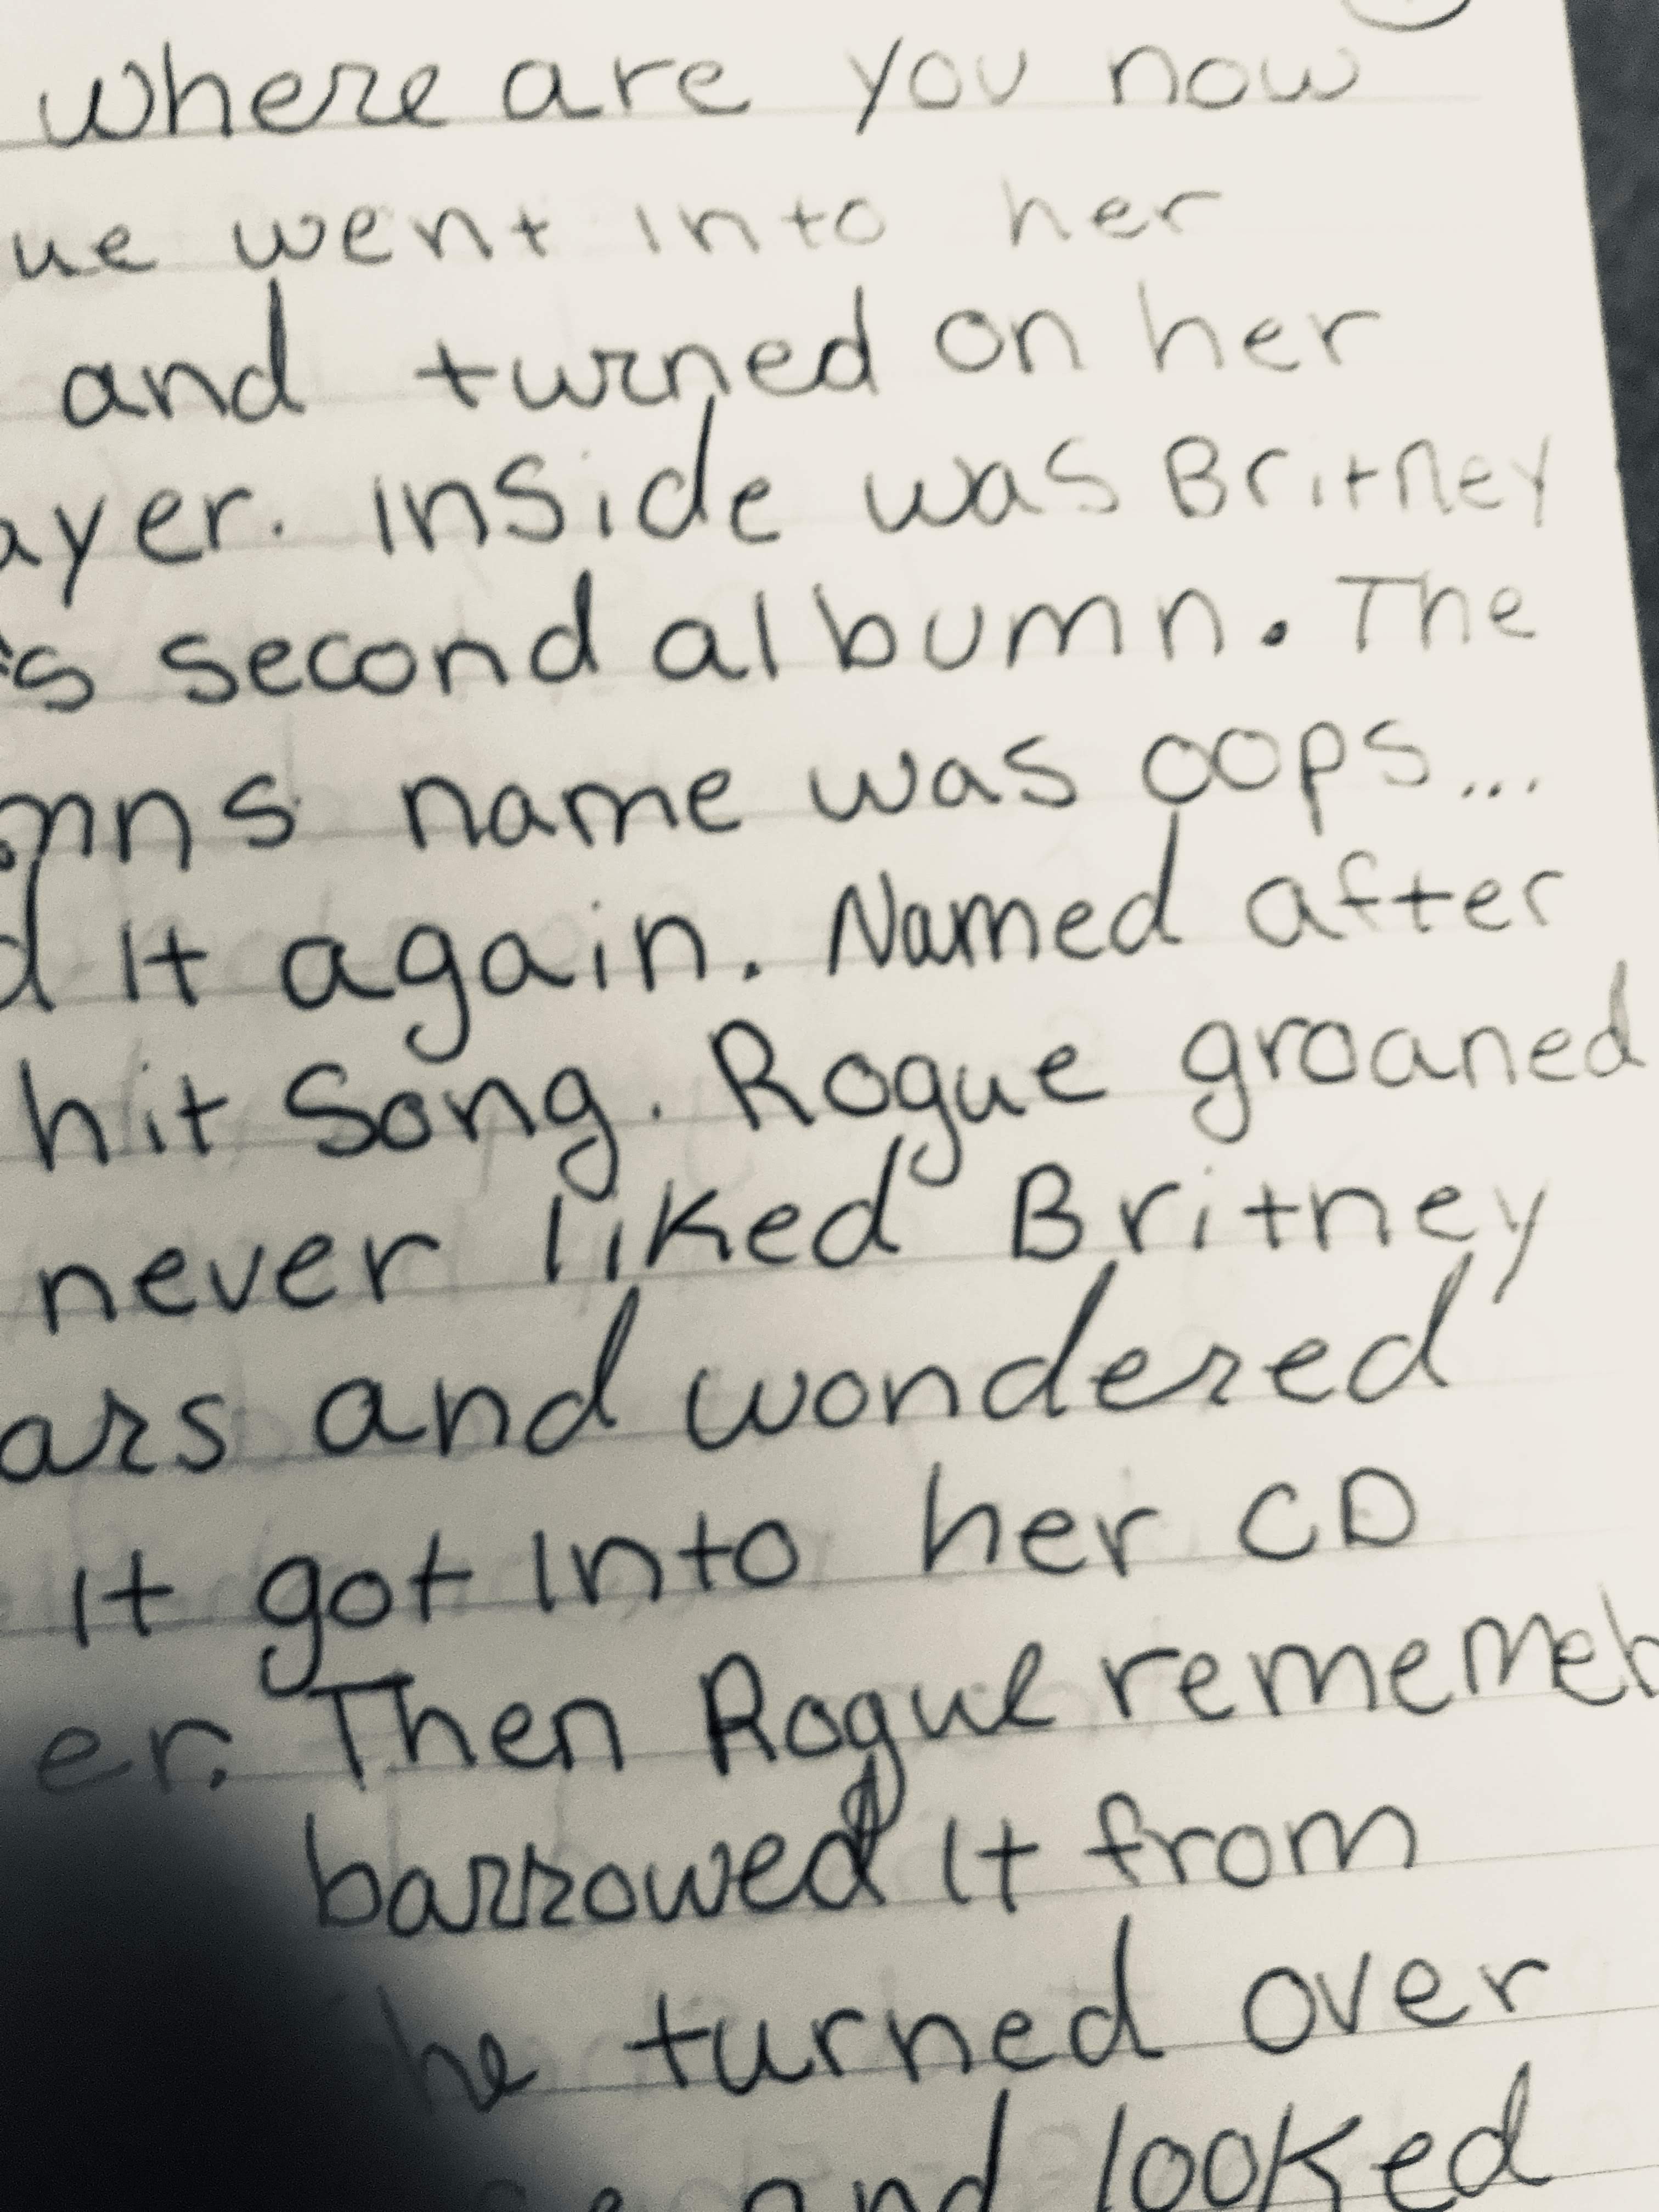 where are you now
ue went into her
and turned on her
ayer. inside was Britney
's second albumn. The
mns name was oops...
d it again. Named after
hit Song. Rogue groaned
never liked Britney
ars and wondered
it got into her CD
er. Then Rogue rememeb
barrowed it from
he turned over
and looked